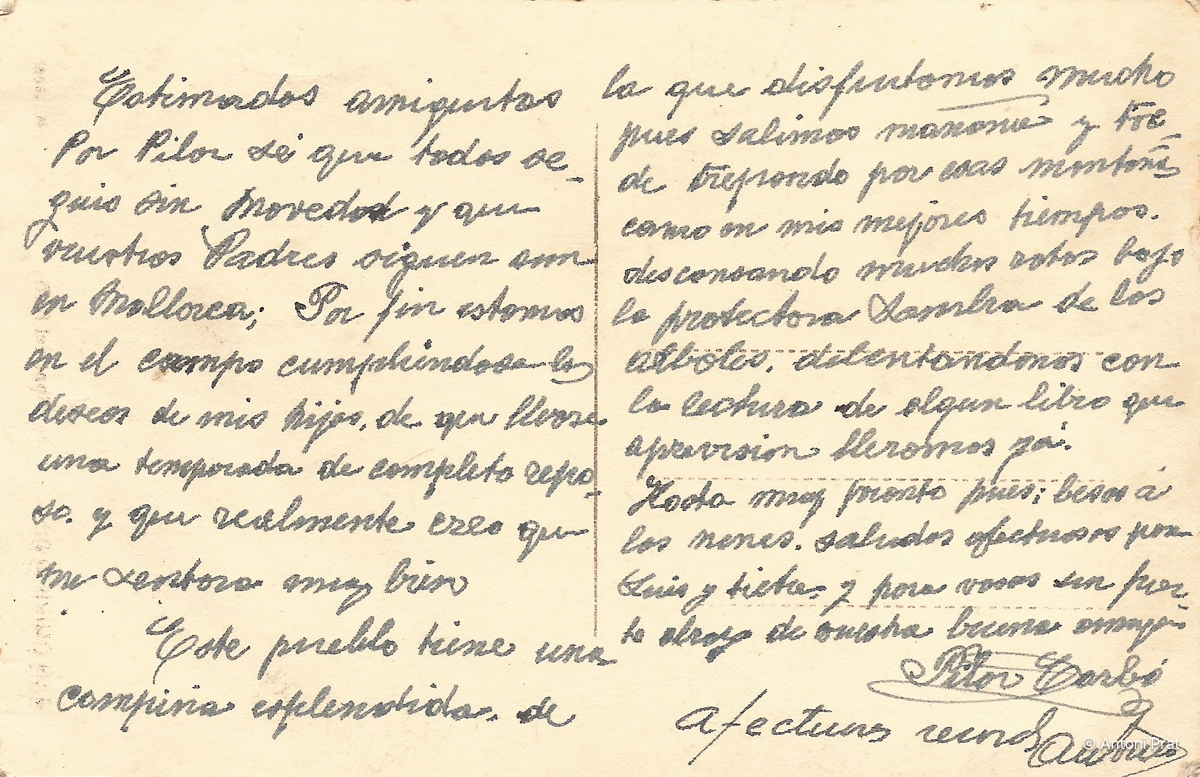 Estimados amiguitos
Por Pilar sé que todos se-
guis sin novedad y que
vuestros Padres siguen aun
en Mallorca; Por fin estamos
en el campo cumpliéndose los
deseos de mis hijos, de que llevase
una temporada de completo repo-
so. y que realmente creo que
me sentara muy bien
Este pueblo tiene una
campiña esplendida. de
la que disfrutamos mucho
pues salimos mañana y tar-
de trepando por esas montañas
como en mis mejores tiempos.
descansando muchos ratos bajo
la protectora sombra de los
alboles. deleitandonos con
la lectura de algun libro que
aprevision lleramos ya.
Hasta muy pronto pues; besos á
los nenes. saludos afectuosos para
Luis y tieta. y para vosos un fuer-
te abrazo de vuestra buena amiga
Pilar Carbó
Afectuos records
© Antoni Prat